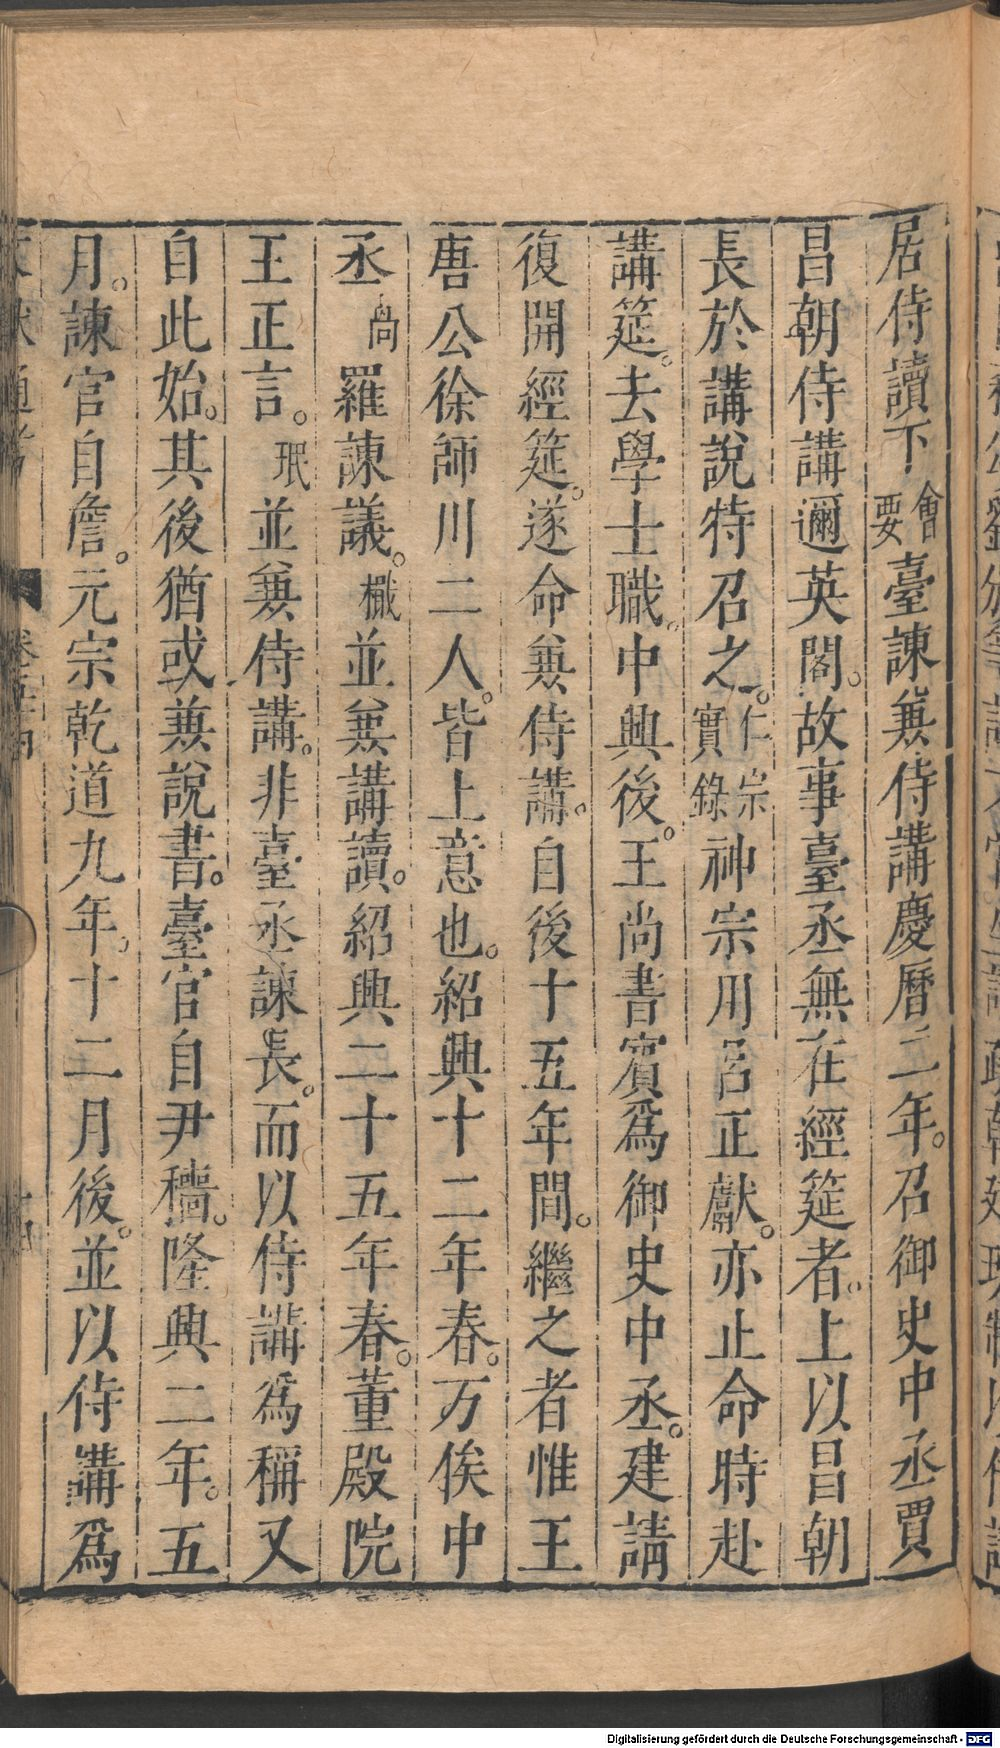 居侍讀下會要臺諫兼侍講慶曆二年。召御史中丞賈
昌朝侍講邇英閣。故事臺丞無在經筵者。上以昌朝
長於講說特召之。仁宗實錄神宗用呂正獻。亦止命時赴
講筵。去學士職。中興後。王尚書賓爲御史中丞。建請
復開經筵。遂命兼侍講。自後十五年間。繼之者惟王
唐公徐師川二人。皆上意也。紹興十二年春。万俟中
丞卨羅諫議。檝並兼講讀。紹興二十五年春。董殿院
王正言。珉並兼侍講。非臺丞諫長。而以侍講爲稱又
自此始。其後猶或兼說書。臺官自尹穡。隆興二年。五
月。諫官自詹。元宗乾道九年。十二月後。並以侍講爲
Digitalisierung gefördert durch die Deutsche Forschungsgemeinschaft - DFG